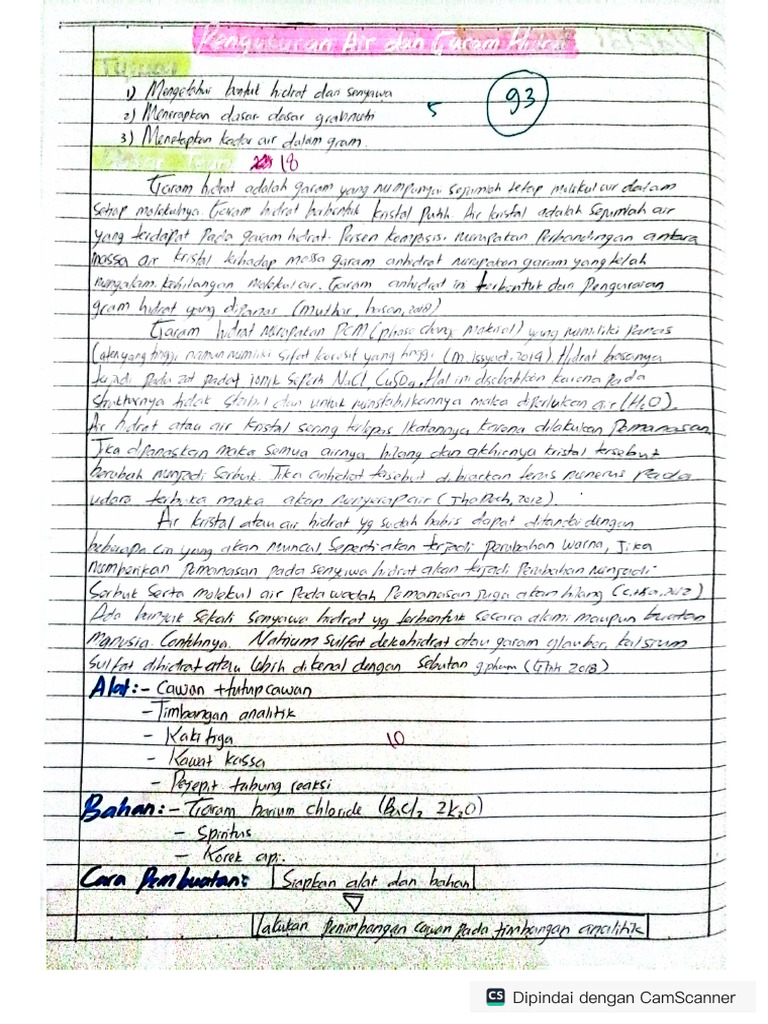 Pengukuran Air dan Garam Hidrat
Tujuan
1) Mengetahui bentuk hidrat dan senyawa
2) Menerapkan dasar dasar grabimetri
3) Menetapkan kadar air dalam gram.
5
93
Dasar Teori 18
Garam hidrat adalah garam yang mempunyai sejumlah tetap molekul air dalam
setiap molekulnya. Garam hidrat berbentuk kristal putih. Air kristal adalah sejumlah air
yang terdapat pada garam hidrat. Persen komposisi merupakan Perbandingan antara
massa air kristal terhadap massa garam anhidrat merupakan garam yang telah
mengalami kehilangan molekul air. Garam anhidrat ini terbentuk dari Penguraian
gram hidrat yang dipanas. (Muthar, hasan, 2018)
Garam hidrat merupakan PCM (phase change Material) yang memiliki Panas
laten yang tinggi namun memiliki sifat korosif yang tinggi (M. Issyad. 2019). Hidrat biasanya
terjadi pada zat padat ionik seperti NaCl, CuSO4, Hal ini disebabkan karena pada
strukturnya tidak stabil dan untuk menstabilkannya maka diperlukan air (H2O).
Air hidrat atau air kristal sering terlepas Ikatannya karena dilakukan Pemanasan
Jika dipanaskan maka semua airnya hilang dan akhirnya kristal tersebut
berubah menjadi Serbuk. Jika anhidrat tersebut dibiarkan terus menerus Pada
udara terbuka maka akan menyerap air ( 2012)
Air kristal atau air hidrat yg sudah habis dapat ditandai dengan
beberapa ciri yang akan muncul seperti akan terjadi perubahan warna, Jika
memberikan Pemanasan pada senyawa hidrat akan terjadi Perubahan Menjadi
Serbuk Serta molekul air Pada wadah Pemanasan juga akan hilang ( 2012)
Ada banyak sekali senyawa hidrat yg terbentuk secara alami maupun buatan
Manusia. Contohnya. Natrium sulfat dekahidrat atau garam glauber, kalsium
sulfat dihidrat atau lebih dikenal dengan sebutan gphum ( 2018)
Alat: - Cawan + tutup cawan
- Timbangan analitik
- Kaki tiga
10
- Kawat kassa
- Pejepit tabung reaksi
Bahan: - Garam barium chloride (BaCl2 2H2O)
- Spiritus
- Korek api.
Cara Pembuatan: Siapkan alat dan bahan
lakukan penimbangan cawan pada timbangan analitik
CS Dipindai dengan CamScanner